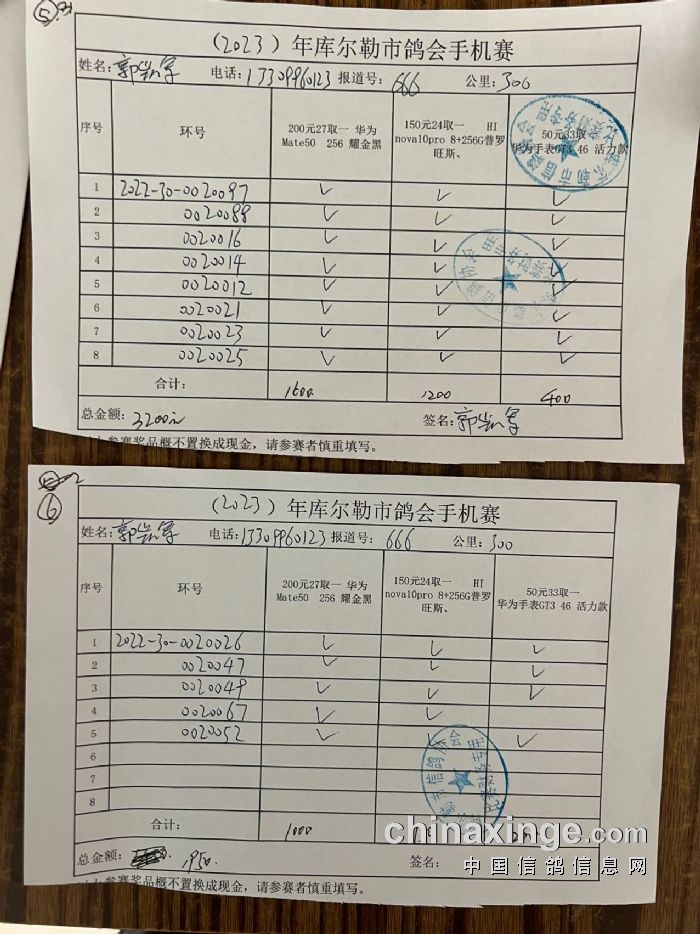 (2023)年库尔勒市鸽会手机赛
姓名: 电话:13309960123 报道号:666 公里:300
序号 环号 200元27取一 华为Mate50 256 耀金黑 150元24取一 HI nova10pro 8+256G普罗旺斯、 50元33取一 华为手表GT3 46 活力款
1 2022-30-0020097 ✓ ✓ ✓
2 0020088 ✓ ✓ ✓
3 0020016 ✓ ✓ ✓
4 0020014 ✓ ✓ ✓
5 0020012 ✓ ✓ ✓
6 0020021 ✓ ✓ ✓
7 0020023 ✓ ✓ ✓
8 0020025 ✓ ✓ ✓
合计: 1600 1200 400
总金额:3200元 签名:
参赛奖品概不置换成现金，请参赛者慎重填写。
6
(2023)年库尔勒市鸽会手机赛
姓名: 电话:13309960123 报道号:666 公里:300
序号 环号 200元27取一 华为Mate50 256 耀金黑 150元24取一 HI nova10pro 8+256G普罗旺斯、 50元33取一 华为手表GT3 46 活力款
1 2022-30-0020026 ✓ ✓ ✓
2 0020047 ✓ ✓ ✓
3 0020049 ✓ ✓ ✓
4 0020067 ✓ ✓
5 0020052 ✓ ✓ ✓
6
7
8
合计: 1000
总金额: 1950. 签名:
参赛奖品概不置换成现金，请参赛者慎重填写。
chinaxinge.com
中国信鸽信息网